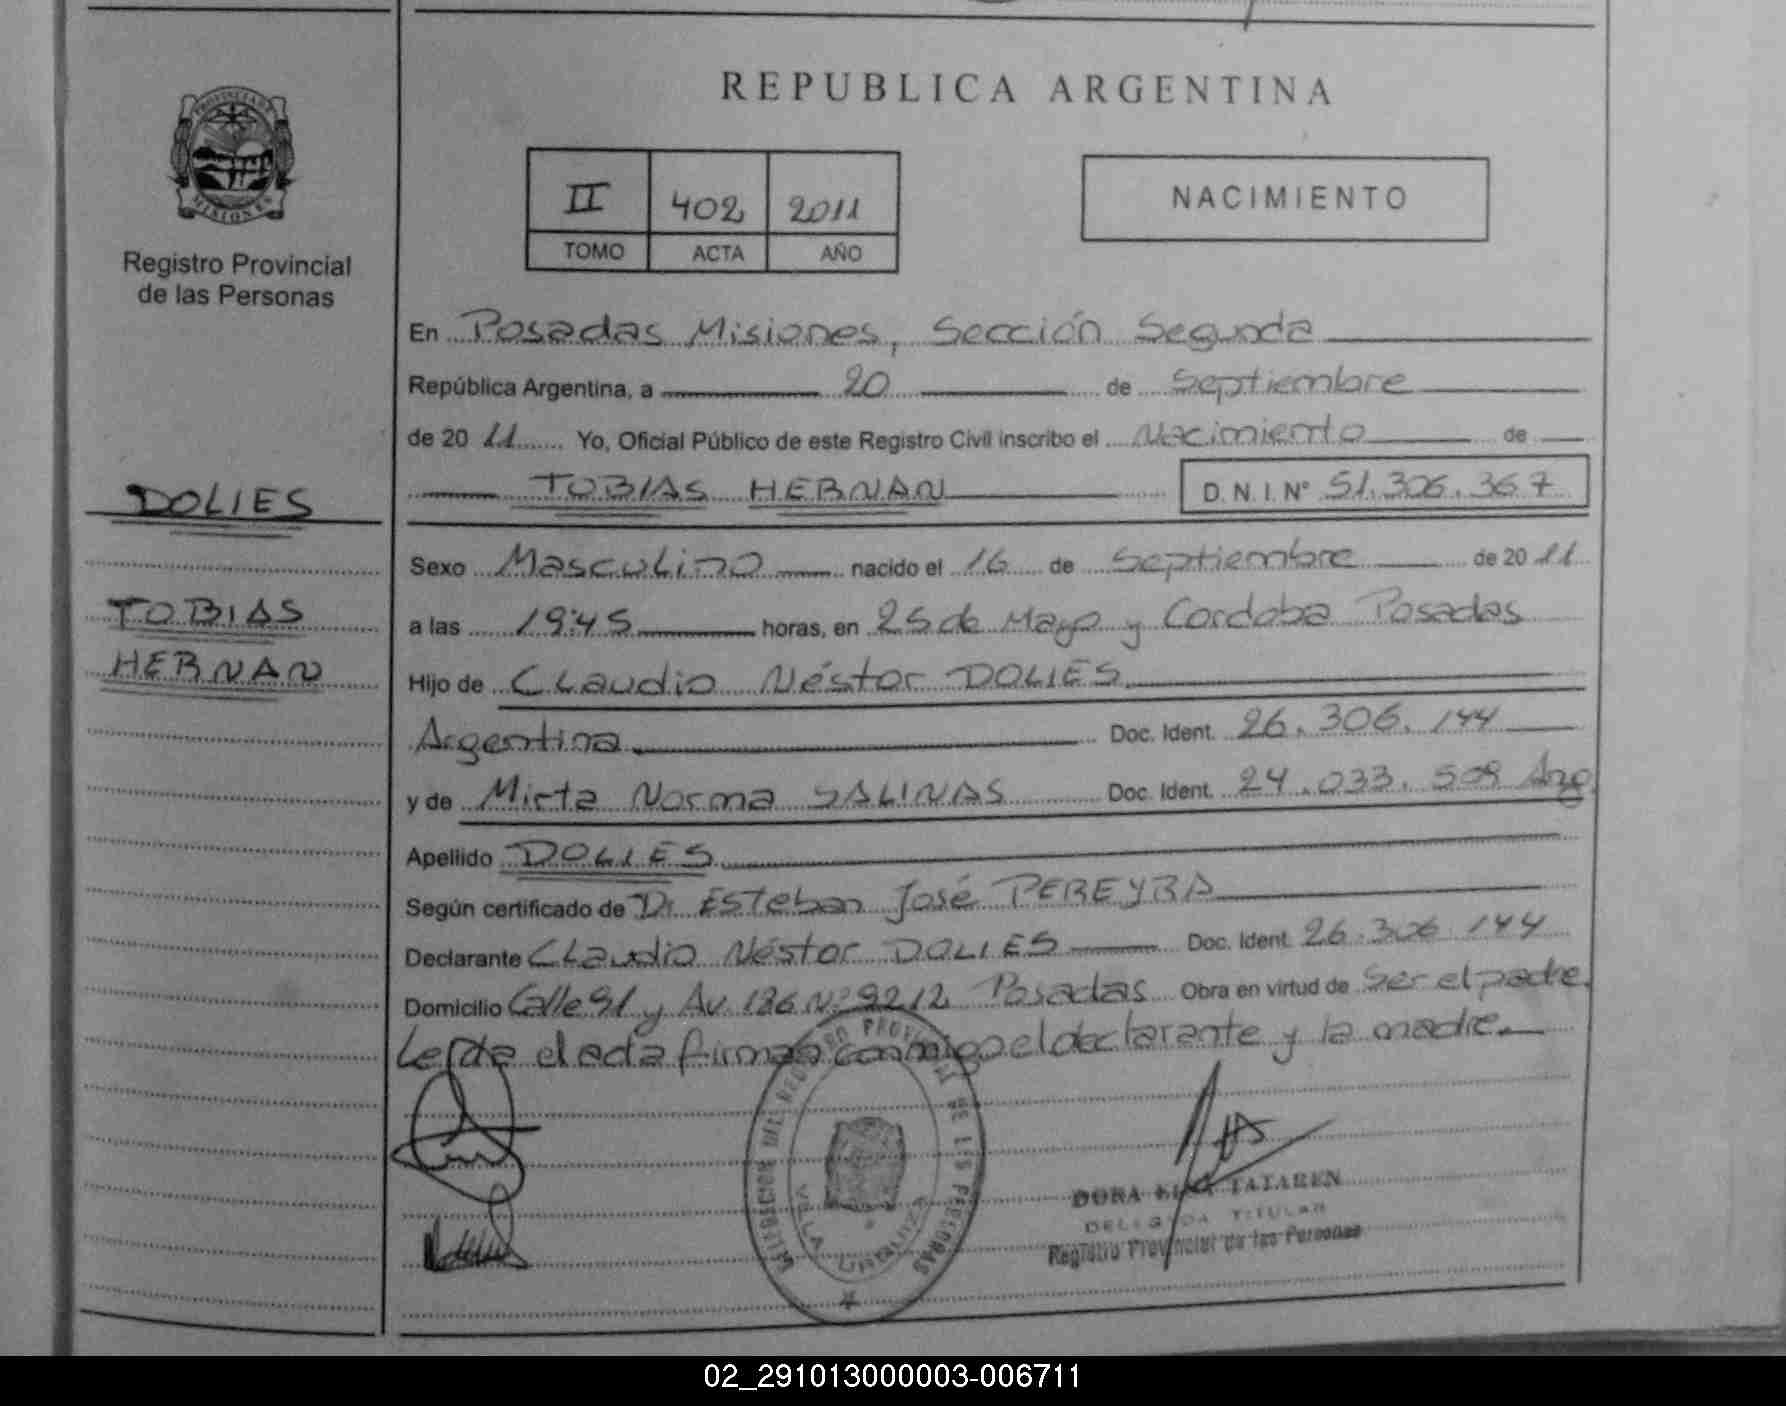 REPUBLICA ARGENTINA
PROVINCIA DE
MISIONES
Registro Provincial
de las Personas
II 402 2011
TOMO ACTA AÑO
NACIMIENTO
En Posadas Misiones, Sección Segunda
República Argentina, a 20 de Septiembre
de 20 11 Yo, Oficial Público de este Registro Civil inscribo el Nacimiento de
TOBIAS HERNAN D.N.I. Nº 51.306.367
DOLIES
TOBIAS
HERNAN
Sexo Masculino nacido el 16 de Septiembre de 20 11
a las 19:45 horas, en 25 de Mayo y Cordoba Posadas
Hijo de Claudio Néstor DOLIES
Argentina Doc. Ident. 26.306.144
y de Mirta Norma SALINAS Doc. Ident. 24.033.509 Arg.
Apellido DOLIES
Según certificado de Dr. Esteban José PEREYRA
Declarante Claudio Néstor DOLIES Doc. Ident. 26.306.144
Domicilio Calle 91 y Av. 186 Nº 9212 Posadas Obra en virtud de Ser el padre.
Leída el acta firman conmigo el declarante y la madre.
DORA TATAREN
DELEGADA TITULAR
Registro Provincial de las Personas
DEL REGISTRO PROVINCIAL DE LAS PERSONAS
02_291013000003-006711